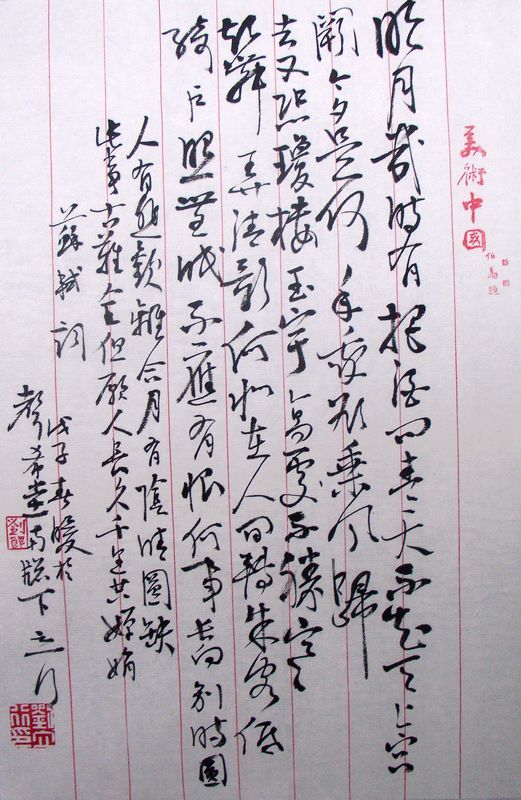 美術中國
明月幾時有把酒問青天不知天上宮
闕今夕是何年我欲乘風歸
去又恐瓊樓玉宇高處不勝寒
起舞弄清影何似在人間轉朱閣低
綺戶照無眠不應有恨何事長向別時圓
人有悲歡離合月有陰晴圓缺
此事古難全但願人長久千里共嬋娟
蘇軾詞
戊子春暖於
聲希堂南牕下立行